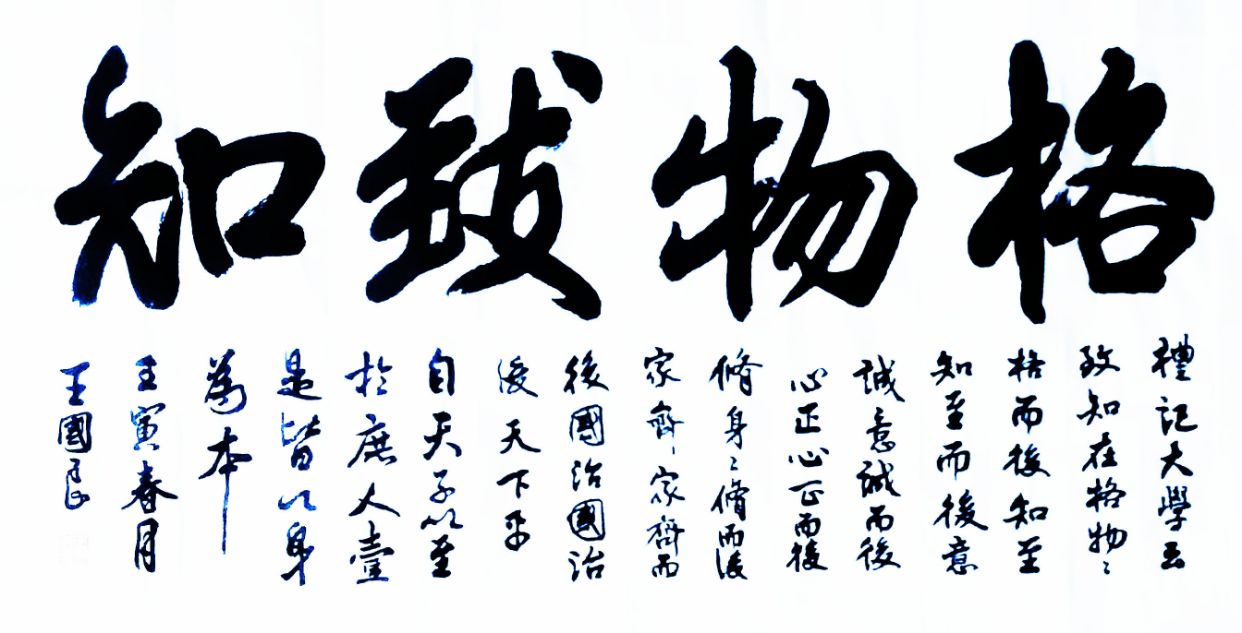 格物致知
禮記大學云
致知在格物〻
格而後知至
知至而後意
誠意誠而後
心正心正而後
脩身〻脩而後
家齊家齊而
後國治國治
後天下平
自天子以至
於庶人壹
是皆以身
為本
壬寅春月
王國良